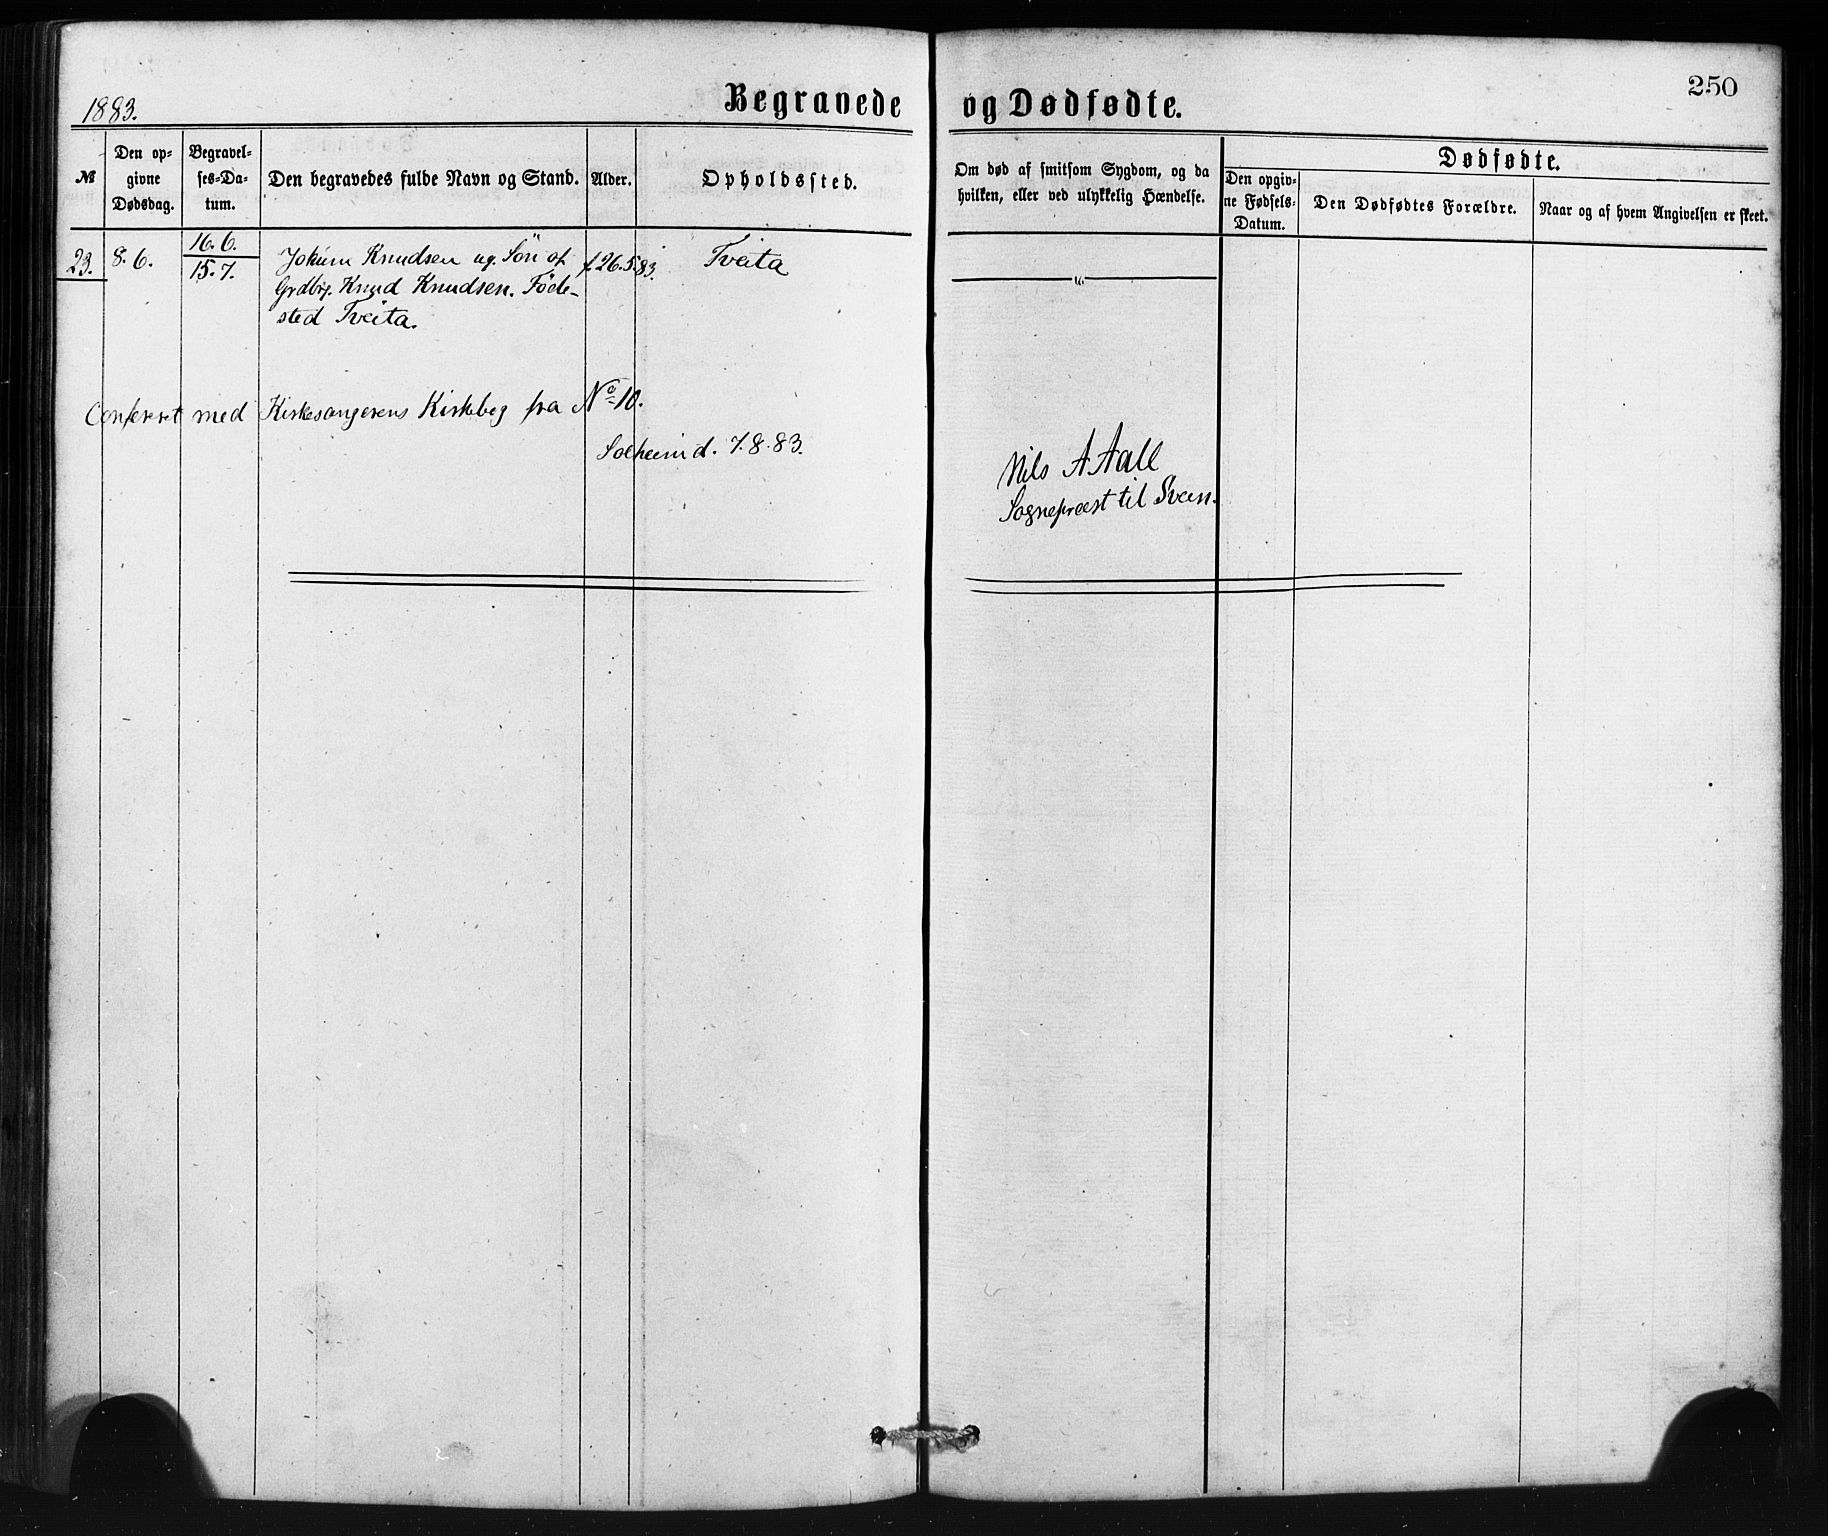 1883.
Begravede og Dødfødte.
250
№
Den op-
givne
Dødsdag.
Begravel-
ses-Da-
tum.
Den begravedes fulde Navn og Stand.
Alder.
Opholdssted.
Om død af smitsom Sygdom, og da
hvilken, eller ved ulykkelig Hændelse.
Dødfødte.
Den opgiv-
ne Fødsels-
Datum.
Den Dødfødtes Forældre.
Naar og af hvem Angivelsen er skeet.
23.
8. 6.
16. 6.
15. 7.
Jokum Knudsen ug. Sön af
Grdbr. Knud Knudsen. Föde-
sted Tveita.
f. 26.5.83.
Tveita
"
Confereret med Kirkesangerens Kirkebog fra No 10.
Solheim d. 7.8.83.
Nils A Aall
Sognepræst til Sveen.